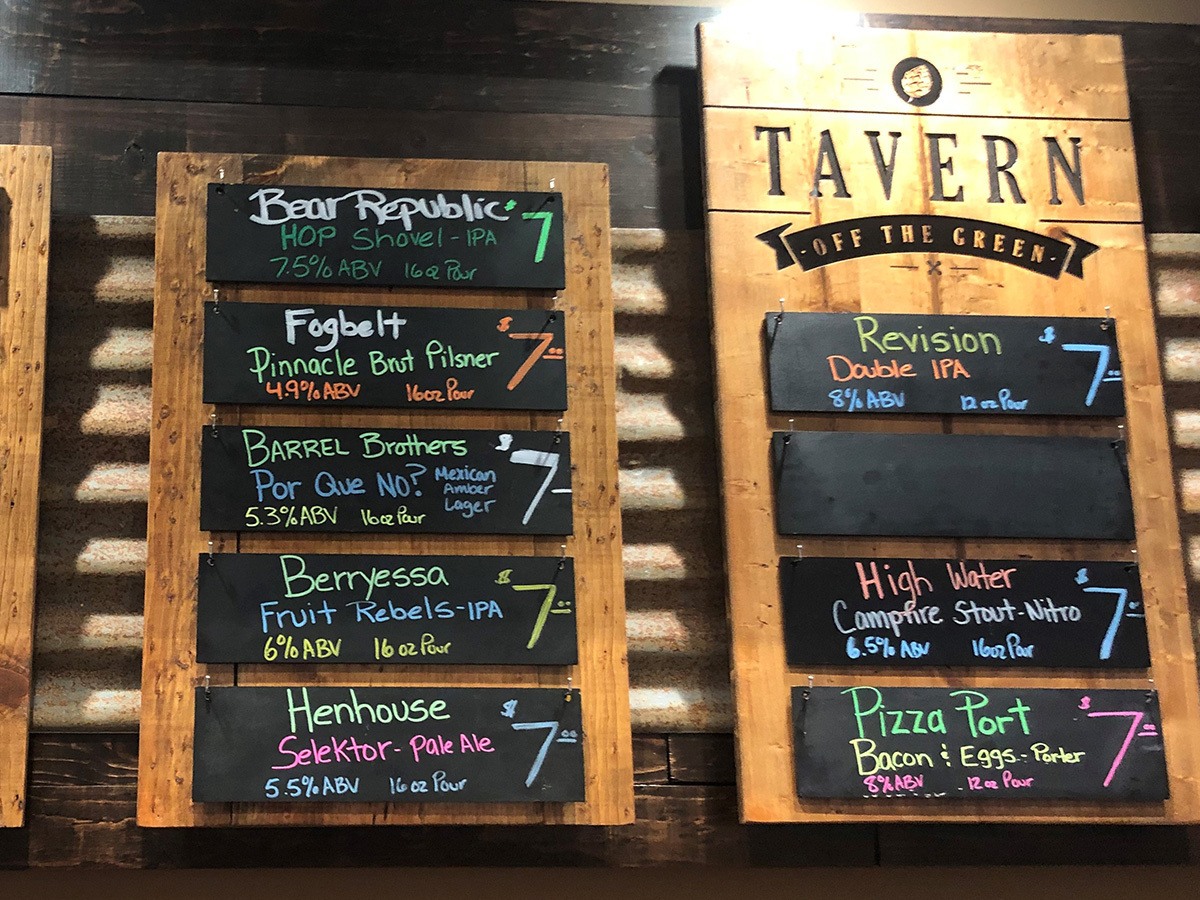 Bear Republic $7
HOP Shovel - IPA
7.5% ABV 16oz Pour
Fogbelt $7.00
Pinnacle Brut Pilsner
4.9% ABV 16oz Pour
BARREL Brothers $7
Por Que NO? Mexican
Amber
Lager
5.3% ABV 16oz Pour
Berryessa $7.00
Fruit Rebels-IPA
6% ABV 16 oz Pour
Henhouse $7.00
Selektor- Pale Ale
5.5% ABV 16 oz Pour
TAVERN
OFF THE GREEN
Revision $7.00
Double IPA
8% ABV 12 oz Pour
High Water $7.00
Campfire Stout-Nitro
6.5% ABV 16oz Pour
Pizza Port $7.00
Bacon & Eggs - Porter
8% ABV 12 oz Pour